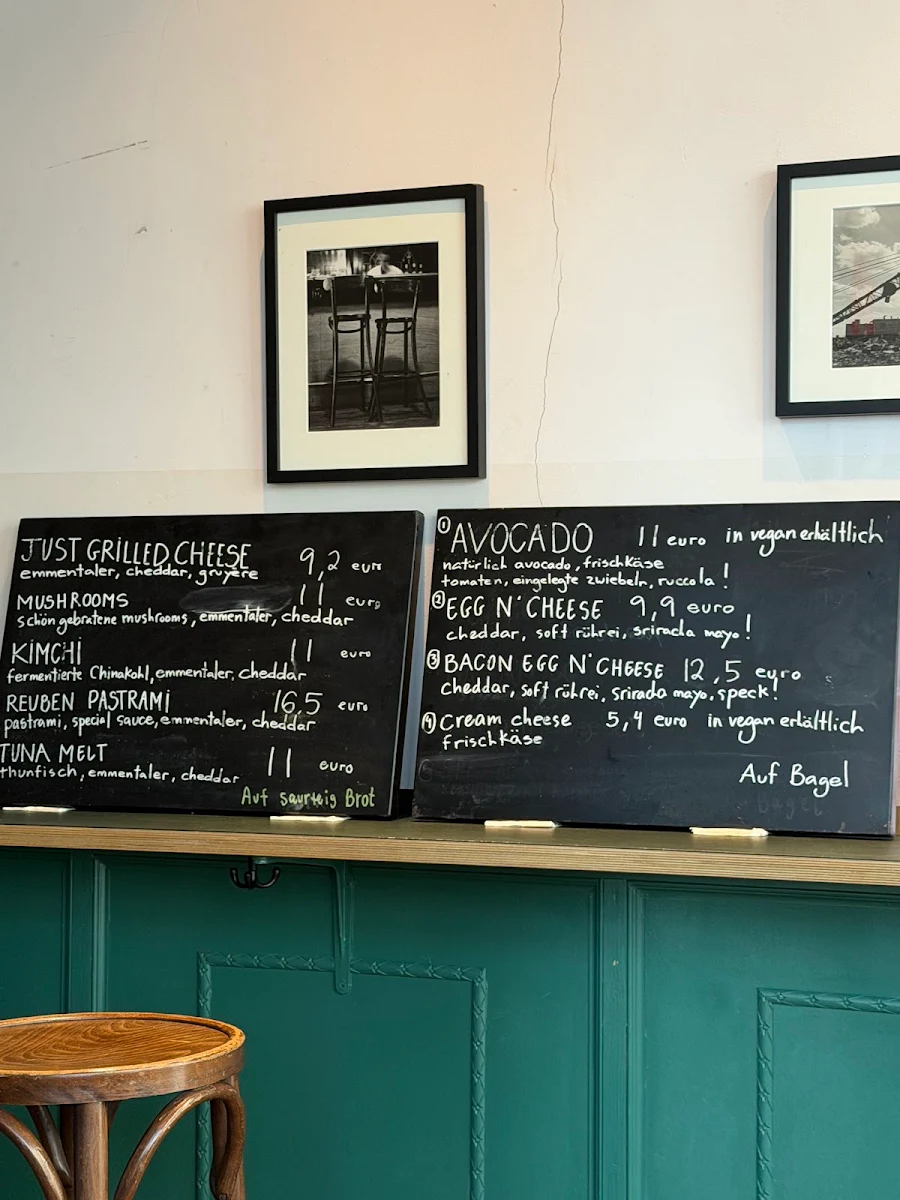 JUST GRILLED CHEESE 9,2 euro
emmentaler, cheddar, gruyere
MUSHROOMS 11 euro
schön gebratene mushrooms, emmentaler, cheddar
KIMCHI 11 euro
fermentierte Chinakohl, emmentaler, cheddar
REUBEN PASTRAMI 16,5 euro
pastrami, special sauce, emmentaler, cheddar
TUNA MELT 11 euro
thunfisch, emmentaler, cheddar
Auf saurteig Brot
① AVOCADO 11 euro in vegan erhältlich
natürlich avocado, frischkäse
tomaten, eingelegte zwiebeln, ruccola!
② EGG N' CHEESE 9,9 euro
cheddar, soft rührei, sriracha mayo!
③ BACON EGG N' CHEESE 12,5 euro
cheddar, soft rührei, sriracha mayo, speck!
④ Cream cheese 5,4 euro in vegan erhältlich
frischkäse
Auf Bagel